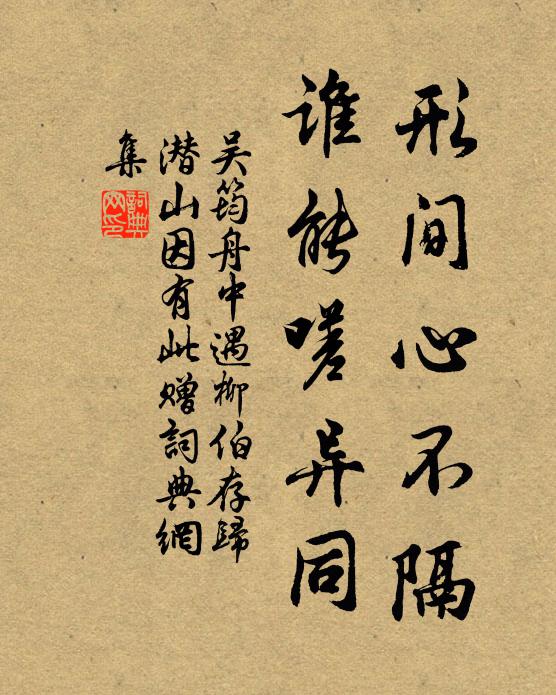 形间心不隔
谁能嗟异同
吴筠舟中遇柳伯存歸
潜山因有此赠詞典網
集
詞典網印